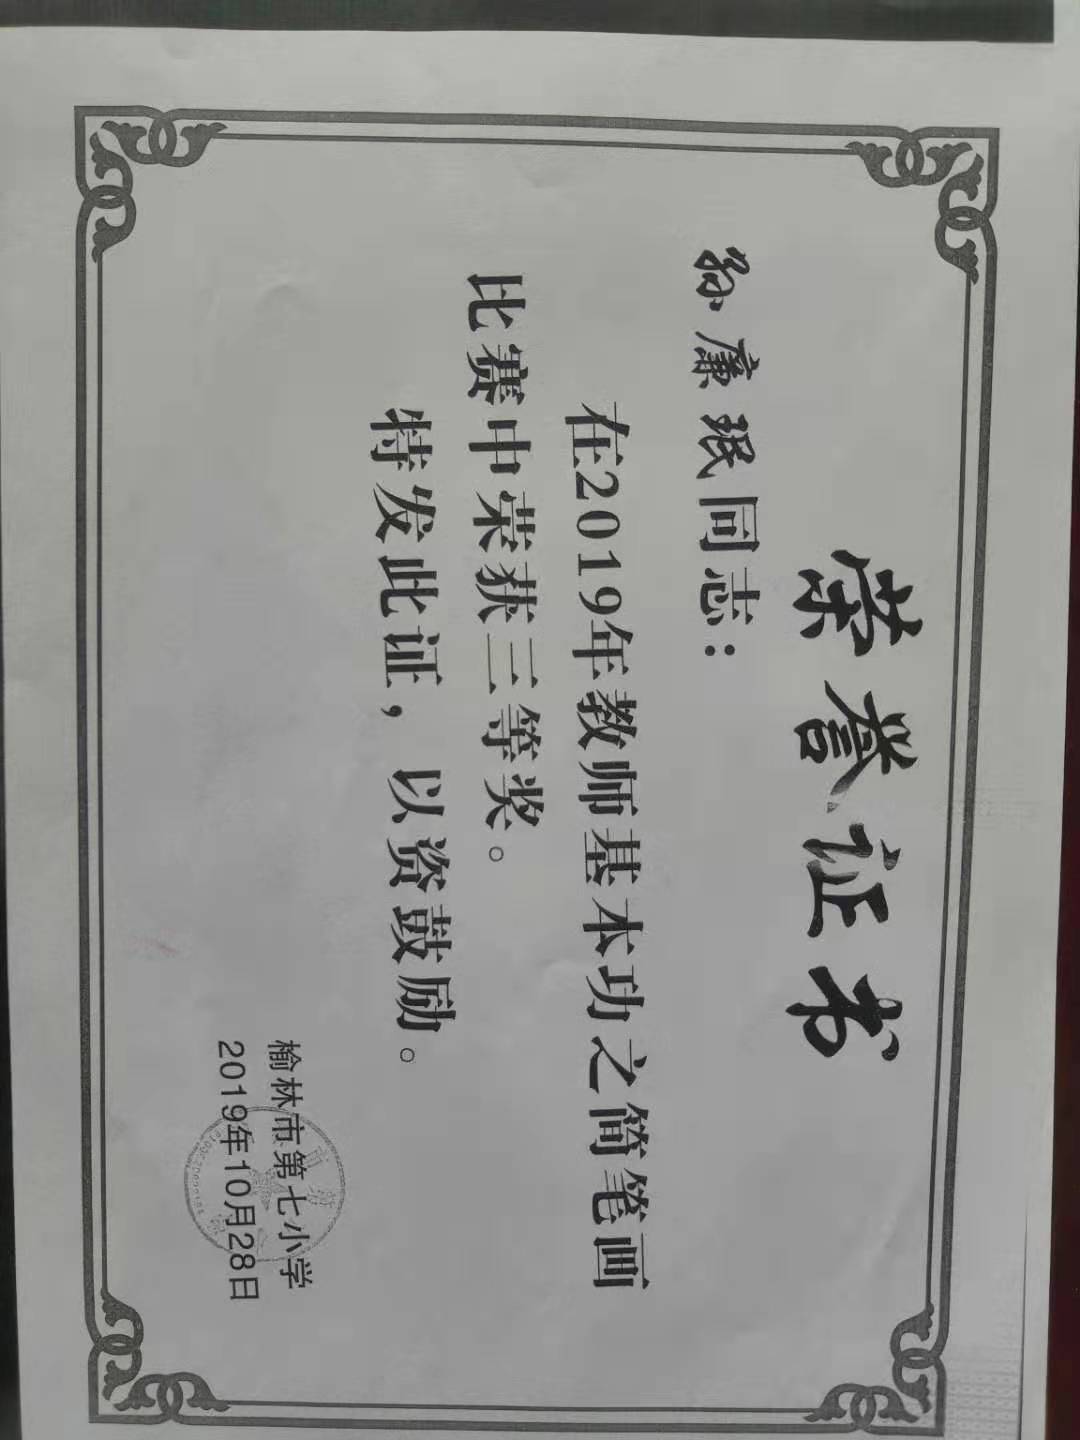 荣誉证书
孙廉珉同志：
在2019年教师基本功之简笔画
比赛中荣获三等奖。
特发此证，以资鼓励。
榆林市第七小学
2019年10月28日